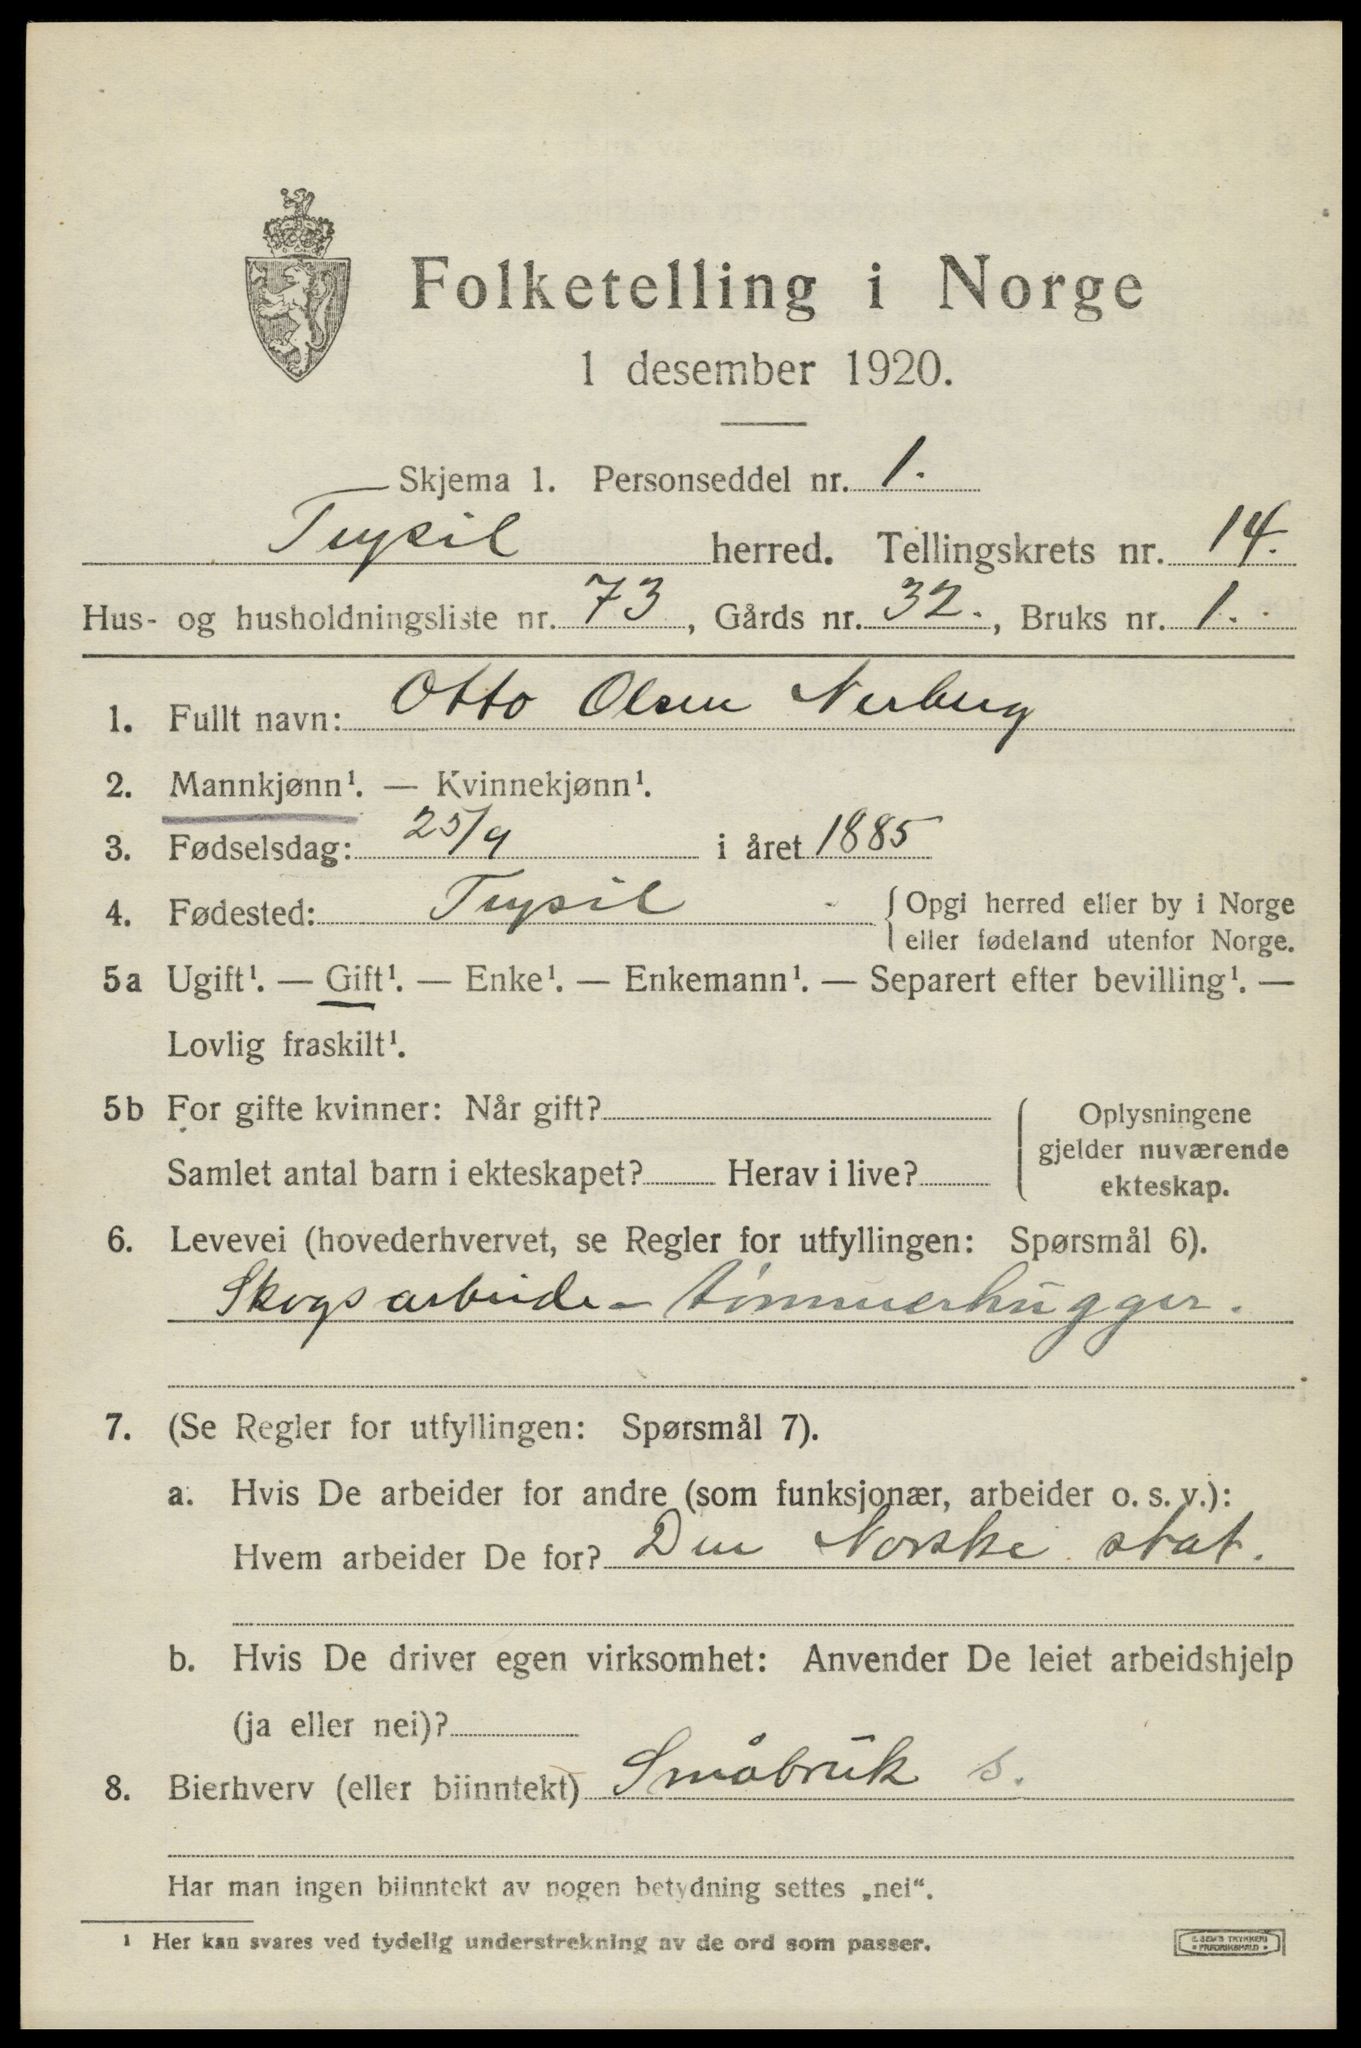 Folketelling i Norge
1 desember 1920.
Skjema 1. Personseddel nr. 1.
Trysil herred. Tellingskrets nr. 14.
Hus- og husholdningsliste nr. 73, Gårds nr. 32., Bruks nr. 1.
1. Fullt navn: Otto Olsen Nerberg
2. Mannkjønn¹. — Kvinnekjønn¹.
3. Fødselsdag: 25/9 i året 1885
4. Fødested: Trysil { Opgi herred eller by i Norge
eller fødeland utenfor Norge.
5a Ugift¹. — Gift¹. — Enke¹. — Enkemann¹. — Separert efter bevilling¹. —
Lovlig fraskilt¹.
5b For gifte kvinner: Når gift?
Samlet antal barn i ekteskapet? Herav i live?
{ Oplysningene
gjelder nuværende
ekteskap.
6. Levevei (hovederhvervet, se Regler for utfyllingen: Spørsmål 6).
Skogsarbeide - tømmerhugger.
7. (Se Regler for utfyllingen: Spørsmål 7).
a. Hvis De arbeider for andre (som funksjonær, arbeider o. s. v.):
Hvem arbeider De for? Den Norske stat.
b. Hvis De driver egen virksomhet: Anvender De leiet arbeidshjelp
(ja eller nei)?
8. Bierhverv (eller biinntekt) Småbruk s.
Har man ingen biinntekt av nogen betydning settes „nei“.
¹ Her kan svares ved tydelig understrekning av de ord som passer.
E. SEM'S TRYKKERI
FREDRIKSHALD